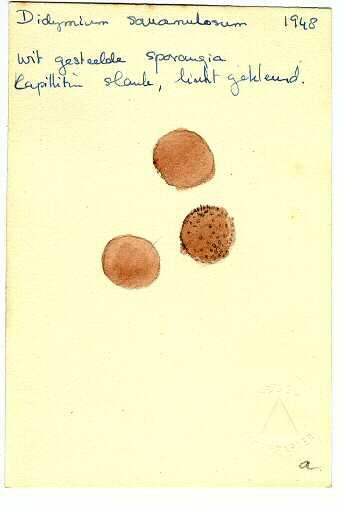 Didymium squamulosum 1948
wit gesteelde sporangia
Capillitium slank, licht gekleurd.
a.